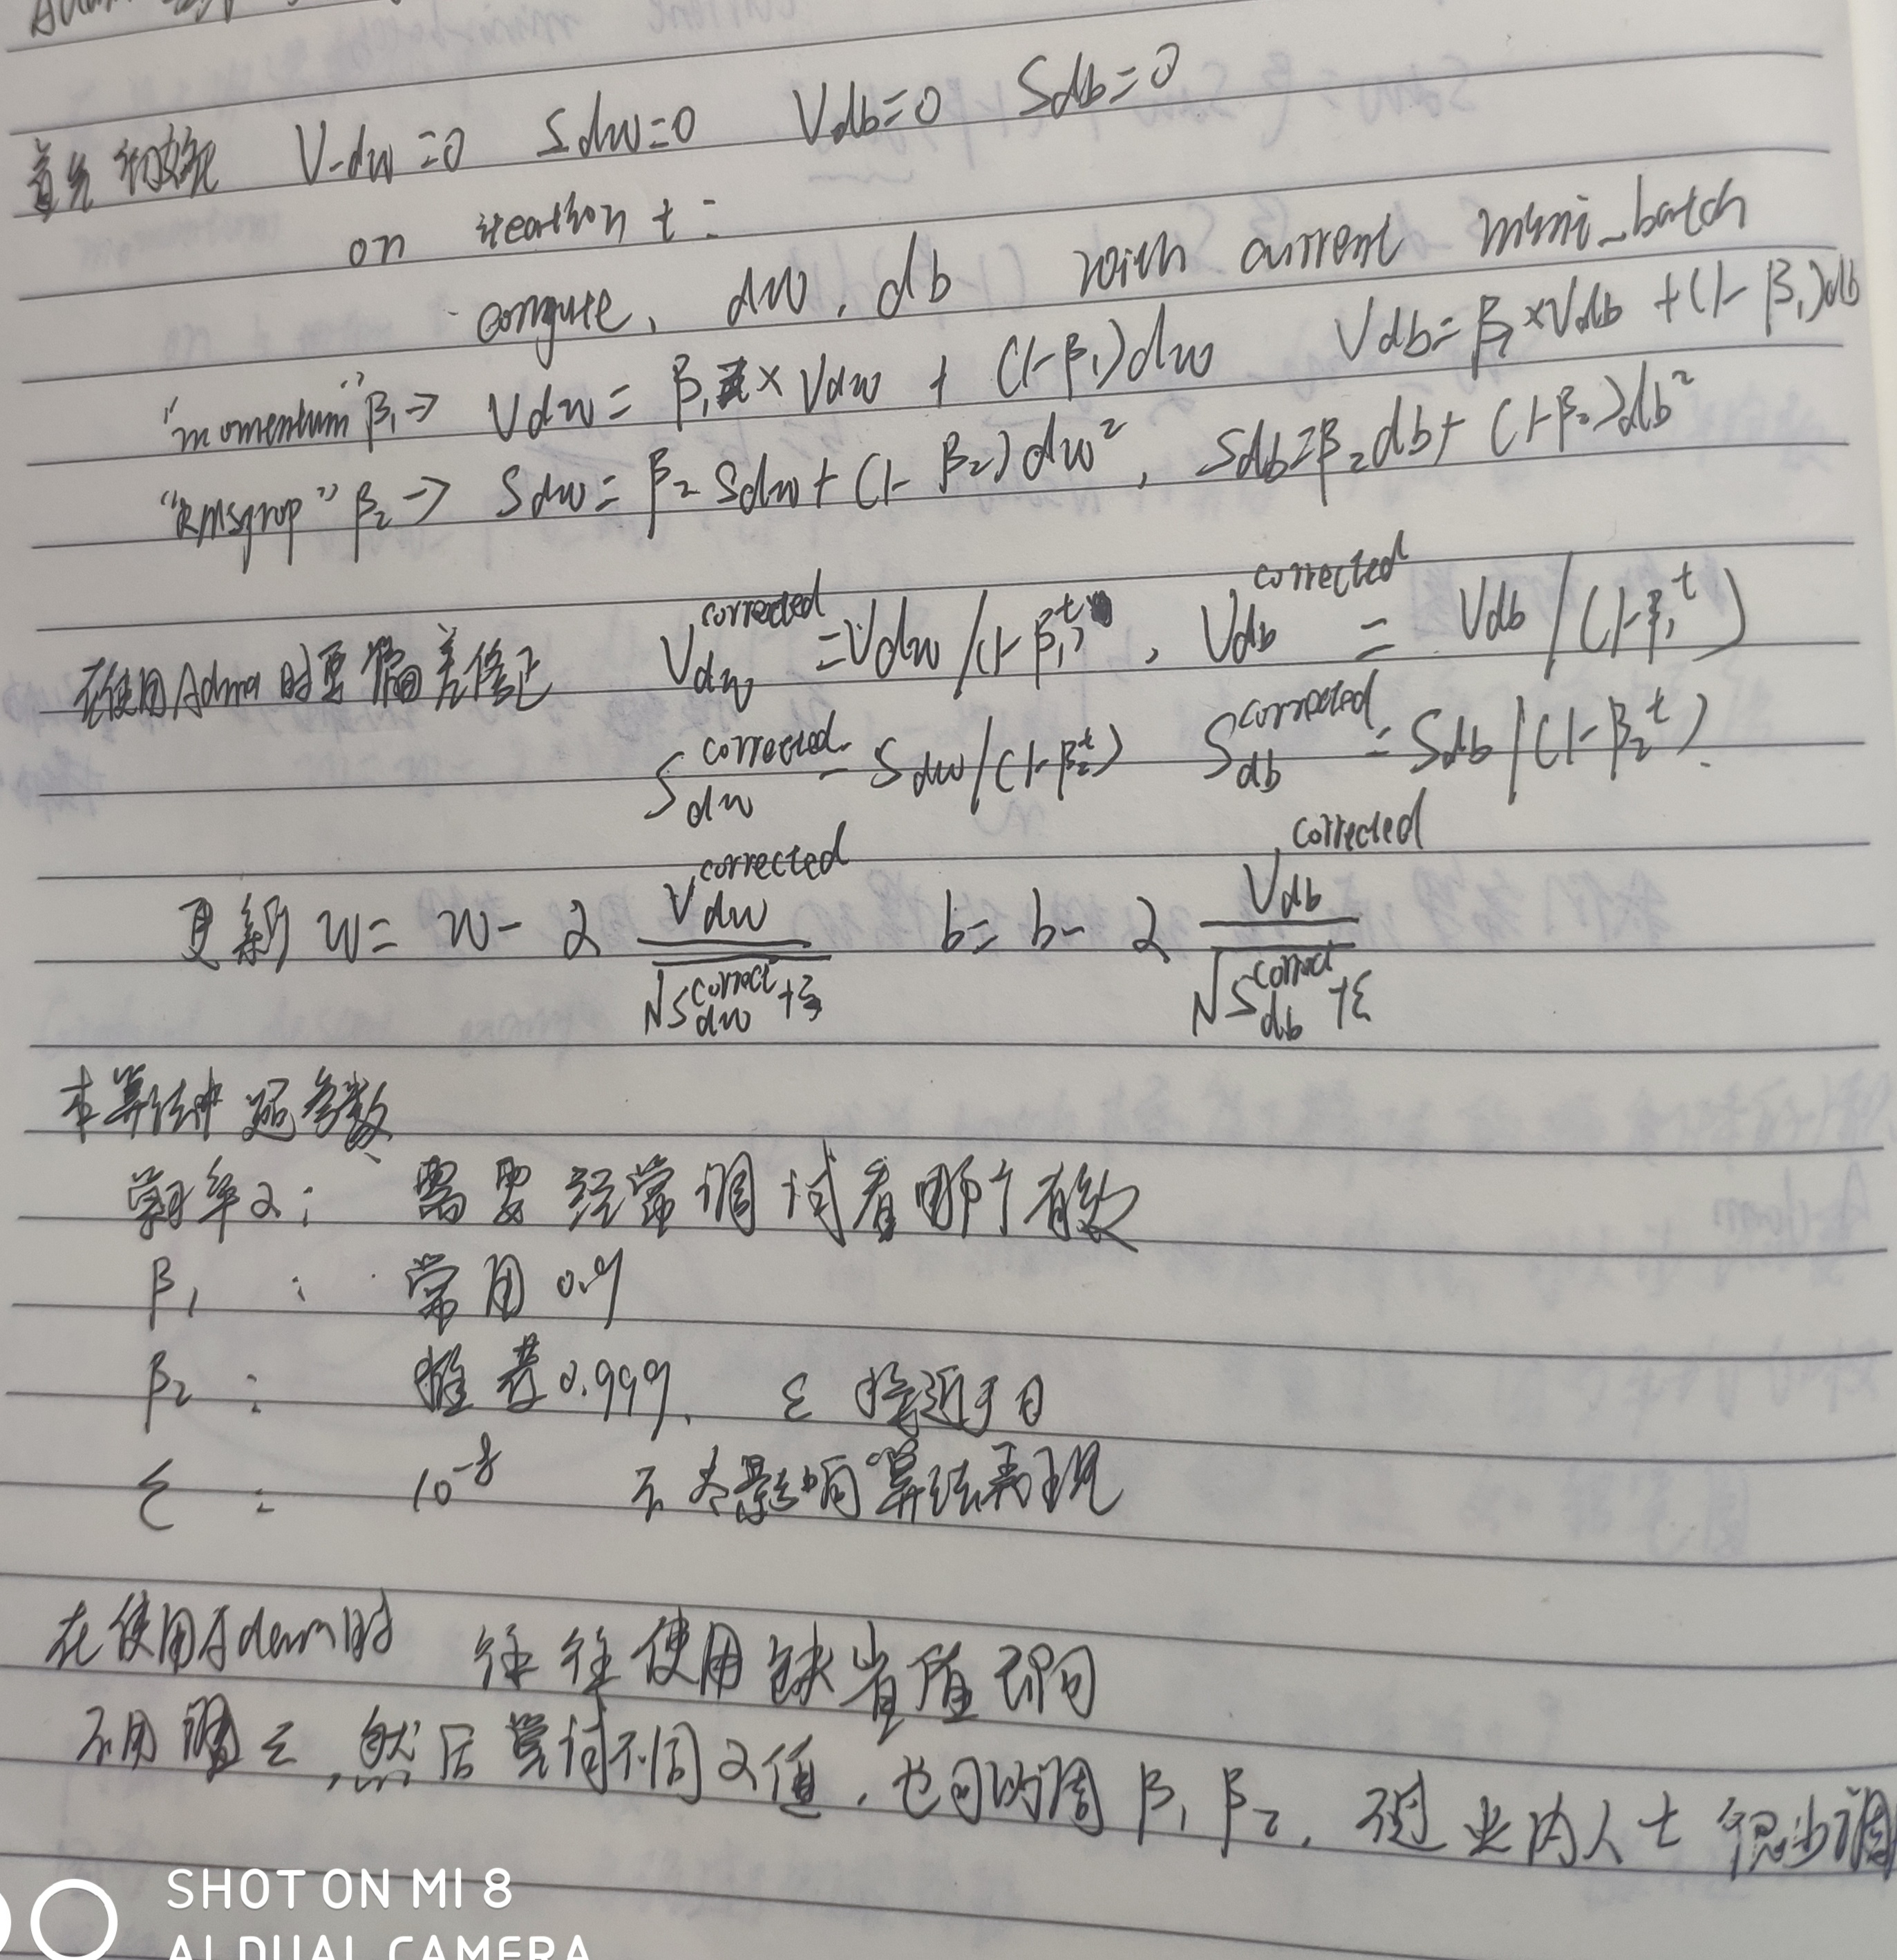 首先初始化 V-dw=0 Sdw=0 Vdb=0 Sdb=0
on iteartion t:
compute, dw, db with current mini_batch
"momentum" β₁→ Vdw = β₁ × Vdw + (1-β₁)dw Vdb=β₁×Vdb+(1-β₁)db
"RMSprop" β₂→ Sdw=β₂Sdw+(1-β₂)dw², Sdb=β₂db+(1-β₂)db²
在使用Adma时要偏差修正 V_dw^corrected =Vdw/(1-β₁^t), V_db^corrected = Vdb/(1-β₁^t)
S_dw^corrected = Sdw/(1-β₂^t) S_db^corrected = Sdb/(1-β₂^t)
更新 w= w- α V_dw^corrected / √(S_dw^correct+ε) b= b- α V_db^corrected / √(S_db^correct+ε)
本算法中超参数
学习率α: 需要经常调试看哪个有效
β₁ : 常用0.9
β₂ : 推荐0.999. ε 接近于0
ε : 10⁻⁸ 不太影响算法表现
在使用Adam时 往往使用缺省值即可
不用调ε,然后尝试不同α值,也可以调β₁ β₂,不过业内人士很少调
SHOT ON MI 8
AI DUAL CAMERA